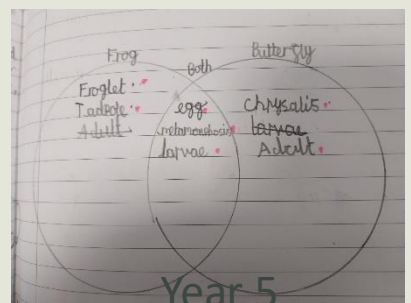 Frog
Both
Butterfly
Froglet
Tadpole
Adult
egg
metamorphosis
larvae
Chrysalis
larvae
Adult
Year 5